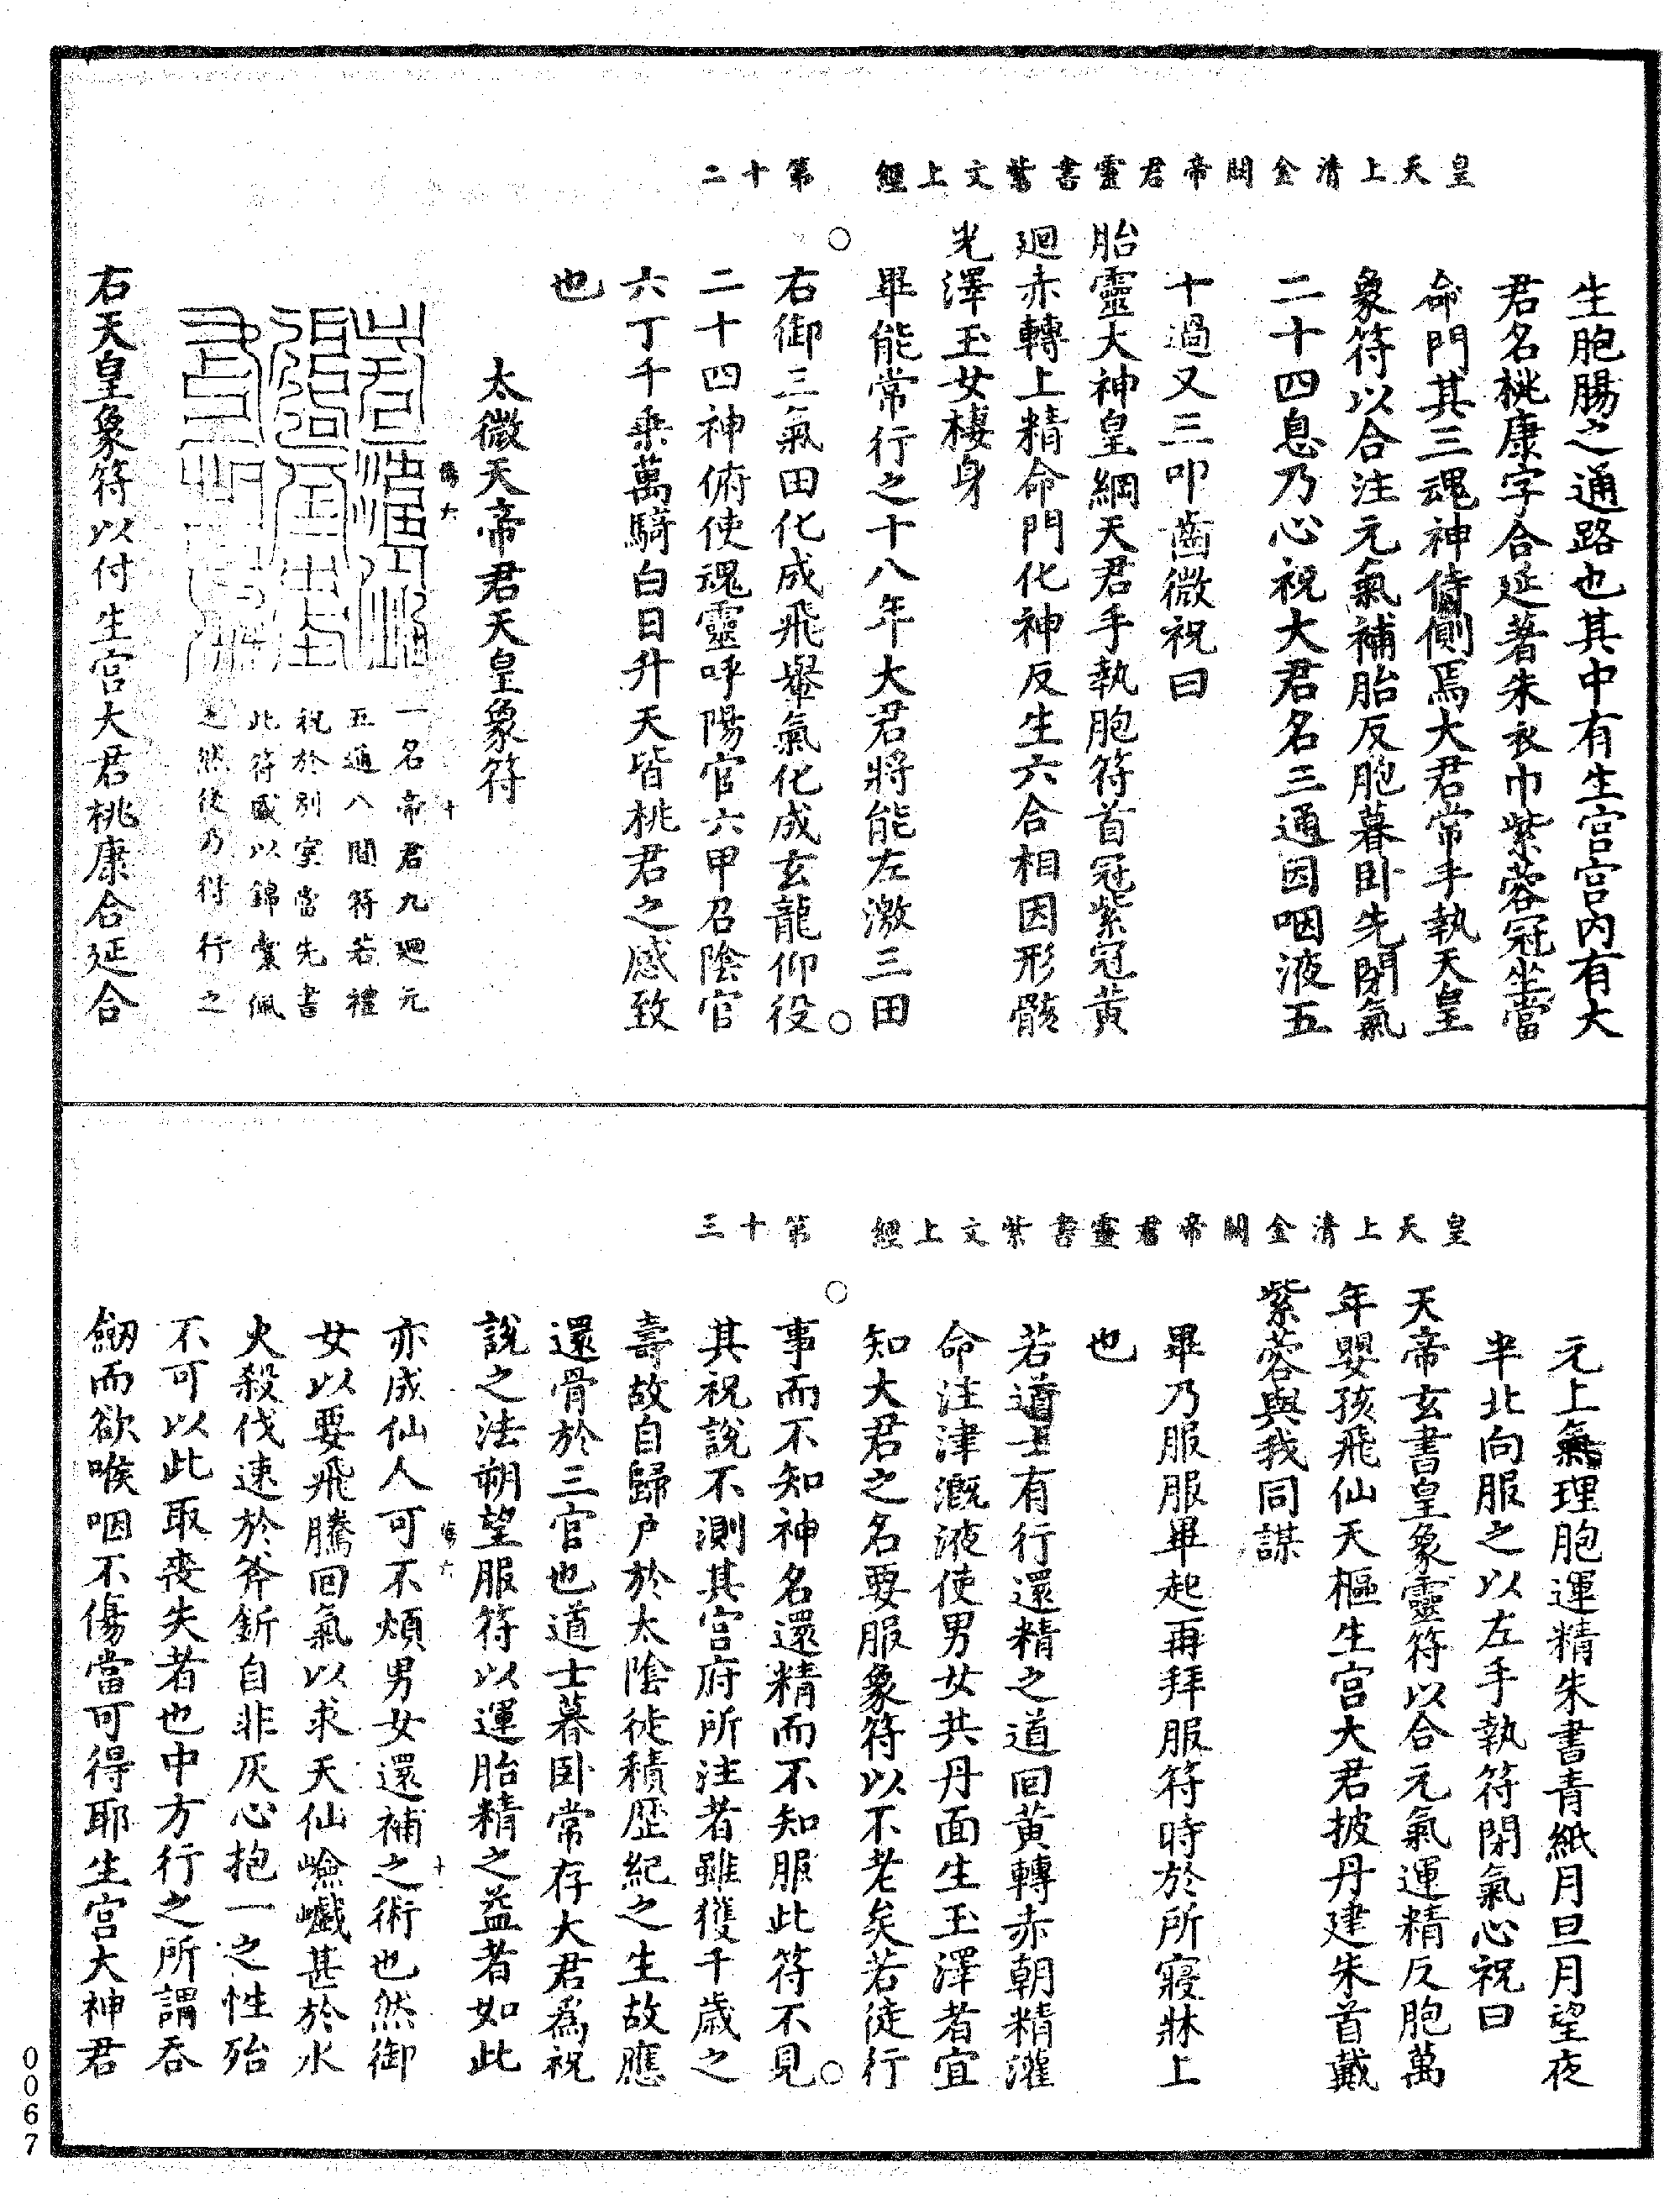 皇天上清金闕帝君靈書紫文上經　第十二
生胞腸之通路也其中有生宮宮內有大
君名桃康字合延著朱衣巾紫蓉冠坐當
命門其三魂神侍側焉大君常手執天皇
象符以合注元氣補胎反胞暮臥先閉氣
二十四息乃心祝大君名三通因咽液五
十過又三叩齒微祝曰
胎靈大神皇綱天君手執胞符首冠紫冠黃
迴赤轉上精命門化神反生六合相因形骸
光澤玉女棲身
畢能常行之十八年大君將能左激三田
右御三氣田化成飛轝氣化成玄龍仰役
二十四神俯使魂靈呼陽官六甲召陰官
六丁千乘萬騎白日升天皆桃君之感致
也
太微天帝君天皇象符
一名帝君九迴元
五通八間符若禮
祝於別室當先書
此符盛以錦囊佩
之然後乃得行之
右天皇象符以付生宮大君桃康合延合
皇天上清金闕帝君靈書紫文上經　第十三
元上氣理胞運精朱書青紙月旦月望夜
半北向服之以左手執符閉氣心祝曰
天帝玄書皇象靈符以合元氣運精反胞萬
年嬰孩飛仙天樞生宮大君披丹建朱首戴
紫蓉與我同謀
畢乃服服畢起再拜服符時於所寢牀上
也
若道士有行還精之道回黃轉赤朝精灌
命注津溉液使男女共丹面生玉澤者宜
知大君之名要服象符以不老矣若徒行
事而不知神名還精而不知服此符不見
其祝說不測其宮府所注者雖獲千歲之
壽故自歸尸於太陰徙積歷紀之生故應
還骨於三官也道士暮臥常存大君為祝
說之法朔望服符以運胎精之益者如此
亦成仙人可不煩男女還補之術也然御
女以要飛騰回氣以求天仙嶮巇甚於水
火殺伐速於斧釿自非灰心抱一之性殆
不可以此取喪失者也中方行之所謂吞
劒而欲喉咽不傷當可得耶生宮大神君
0067